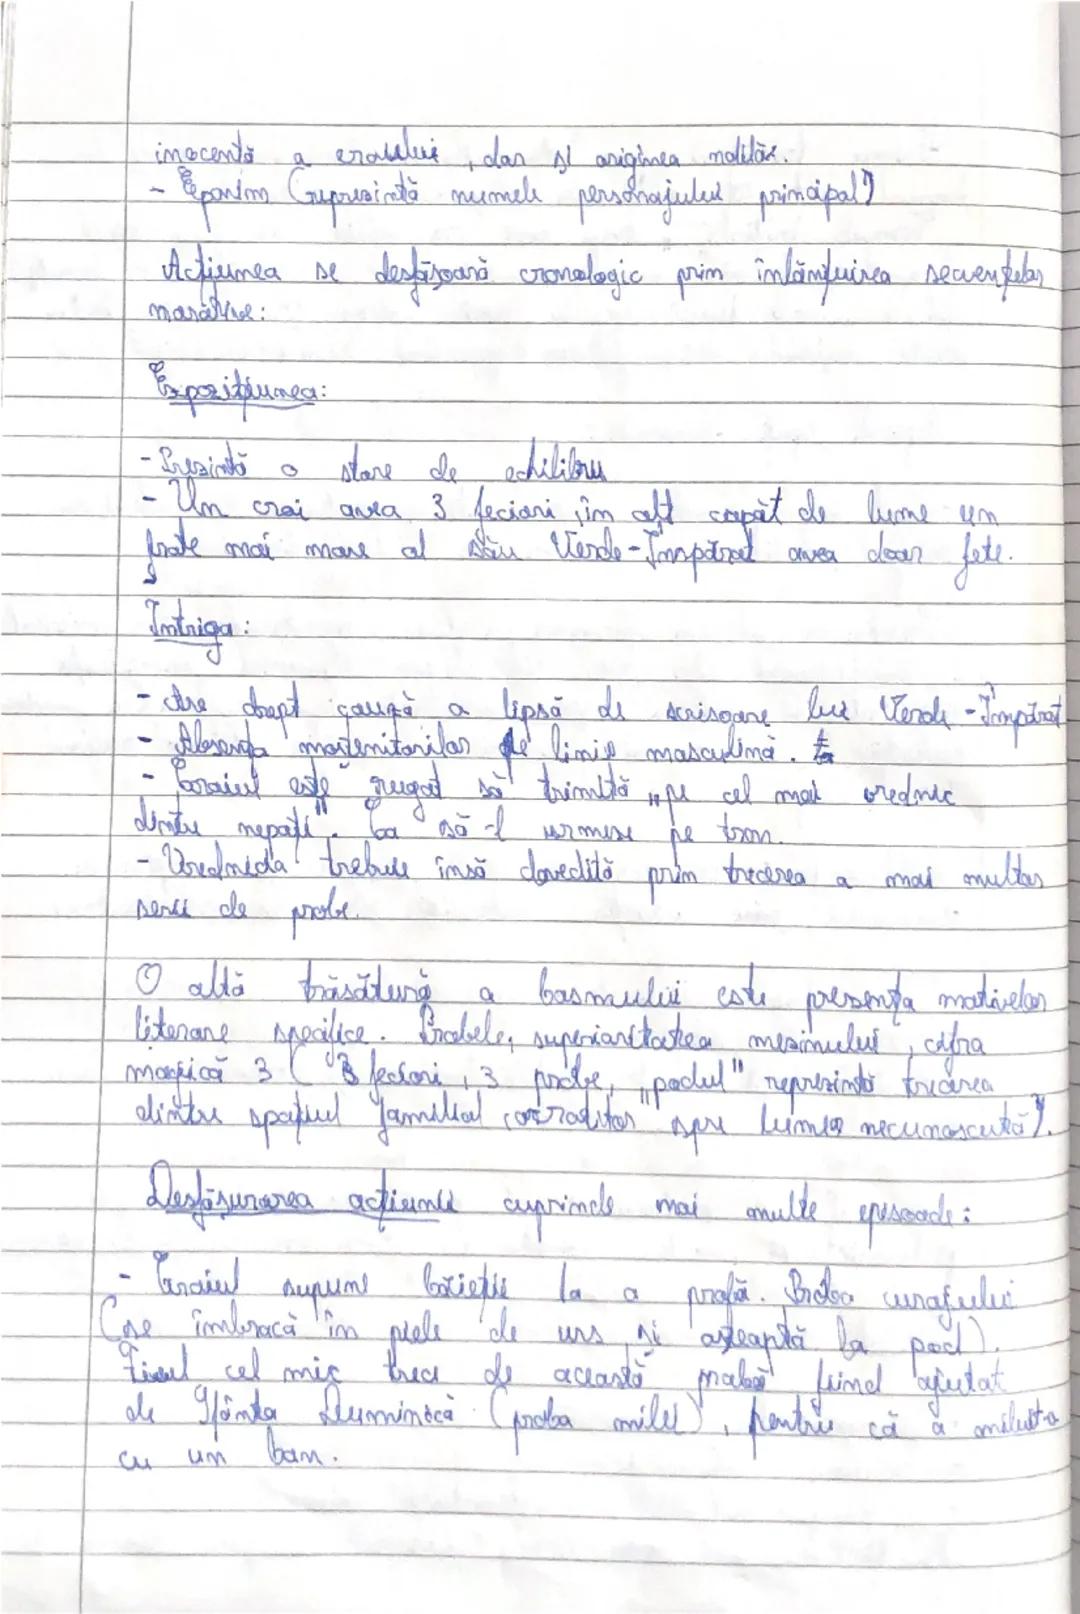 inocentă a eroului, dar și originea nobilă.
- Eponim (reprezintă numele personajului principal)
Acțiunea se desfășoară cronologic prin înlănțuirea secvențelor
narative:
Expozițiunea:
- Prezintă o stare de echilibru
- Un crai avea 3 feciori, în alt capăt de lume un
frate mai mare al său Verde-Împărat avea doar fete.
Intriga:
- Are drept cauză a lipsă de scrisoare lui Verde-Împărat
- Absența moștenitorilor pe linie masculină.
- Craiul este rugat să trimită „pe cel mai vrednic
dintre nepoți". Ca să-l urmeze pe tron.
- Vrednicia trebuie însă dovedită prin trecerea a mai multor
serii de probe.
O altă trăsătură a basmului este prezența motivelor
literare specifice. Probele, superioritatea mezinului, cifra
magică 3 (3 feciori, 3 probe, „podul" reprezintă trecerea
dintre spațiul familial ocrotitor spre lumea necunoscută).
Desfășurarea acțiunii cuprinde mai multe episoade:
- Craiul supune băieții la o probă. Proba curajului
(se îmbracă în piele de urs și așteaptă la pod).
Fiul cel mic trece de această probă fiind ajutat
de Sfânta Duminică (proba milei), pentru că a miluit-o
cu un ban.